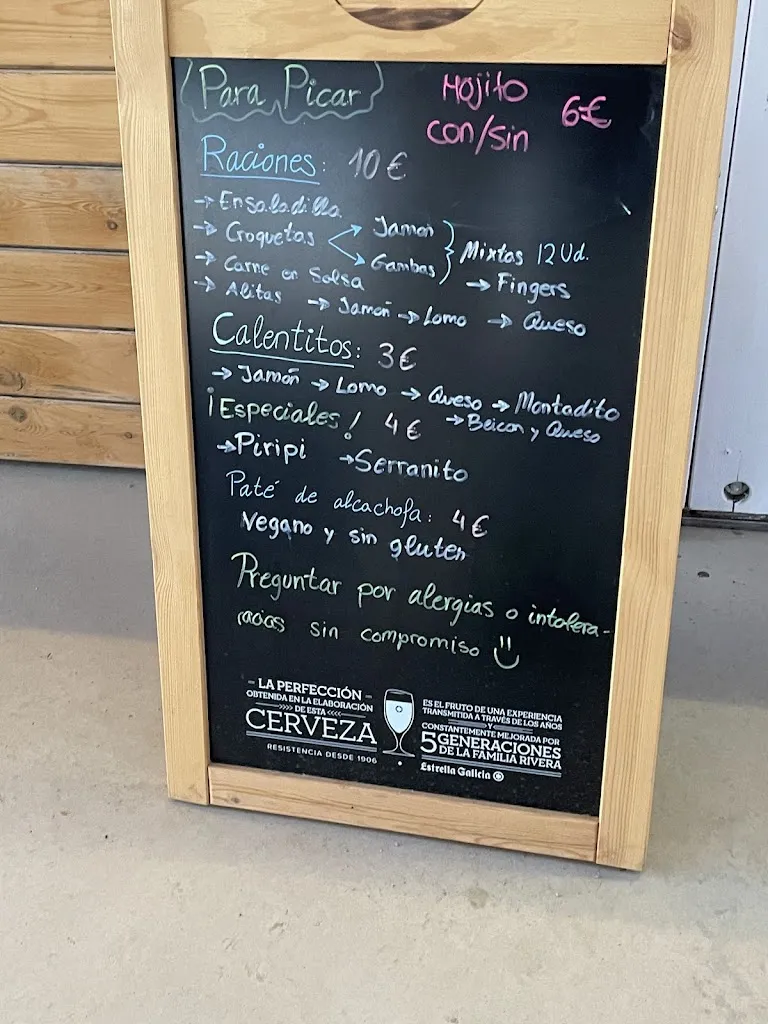 Para Picar
Mojito
con/sin 6€
Raciones: 10€
→ Ensaladilla
→ Croquetas Jamón Gambas Mixtas 12 Ud.
→ Carne en Salsa → Fingers
→ Alitas → Jamón → Lomo → Queso
Calentitos: 3€
→ Jamón → Lomo → Queso → Montadito
→ Beicon y Queso
¡Especiales! 4€
→ Piripi → Serranito
Paté de alcachofa: 4€
Vegano y sin gluten
Preguntar por alergias o intolera-
ncias sin compromiso
LA PERFECCIÓN
OBTENIDA EN LA ELABORACIÓN
DE ESTA
CERVEZA
RESISTENCIA DESDE 1906
ES EL FRUTO DE UNA EXPERIENCIA
TRANSMITIDA A TRAVÉS DE LOS AÑOS
Y
CONSTANTEMENTE MEJORADA POR
5 GENERACIONES
DE LA FAMILIA RIVERA
Estrella Galicia